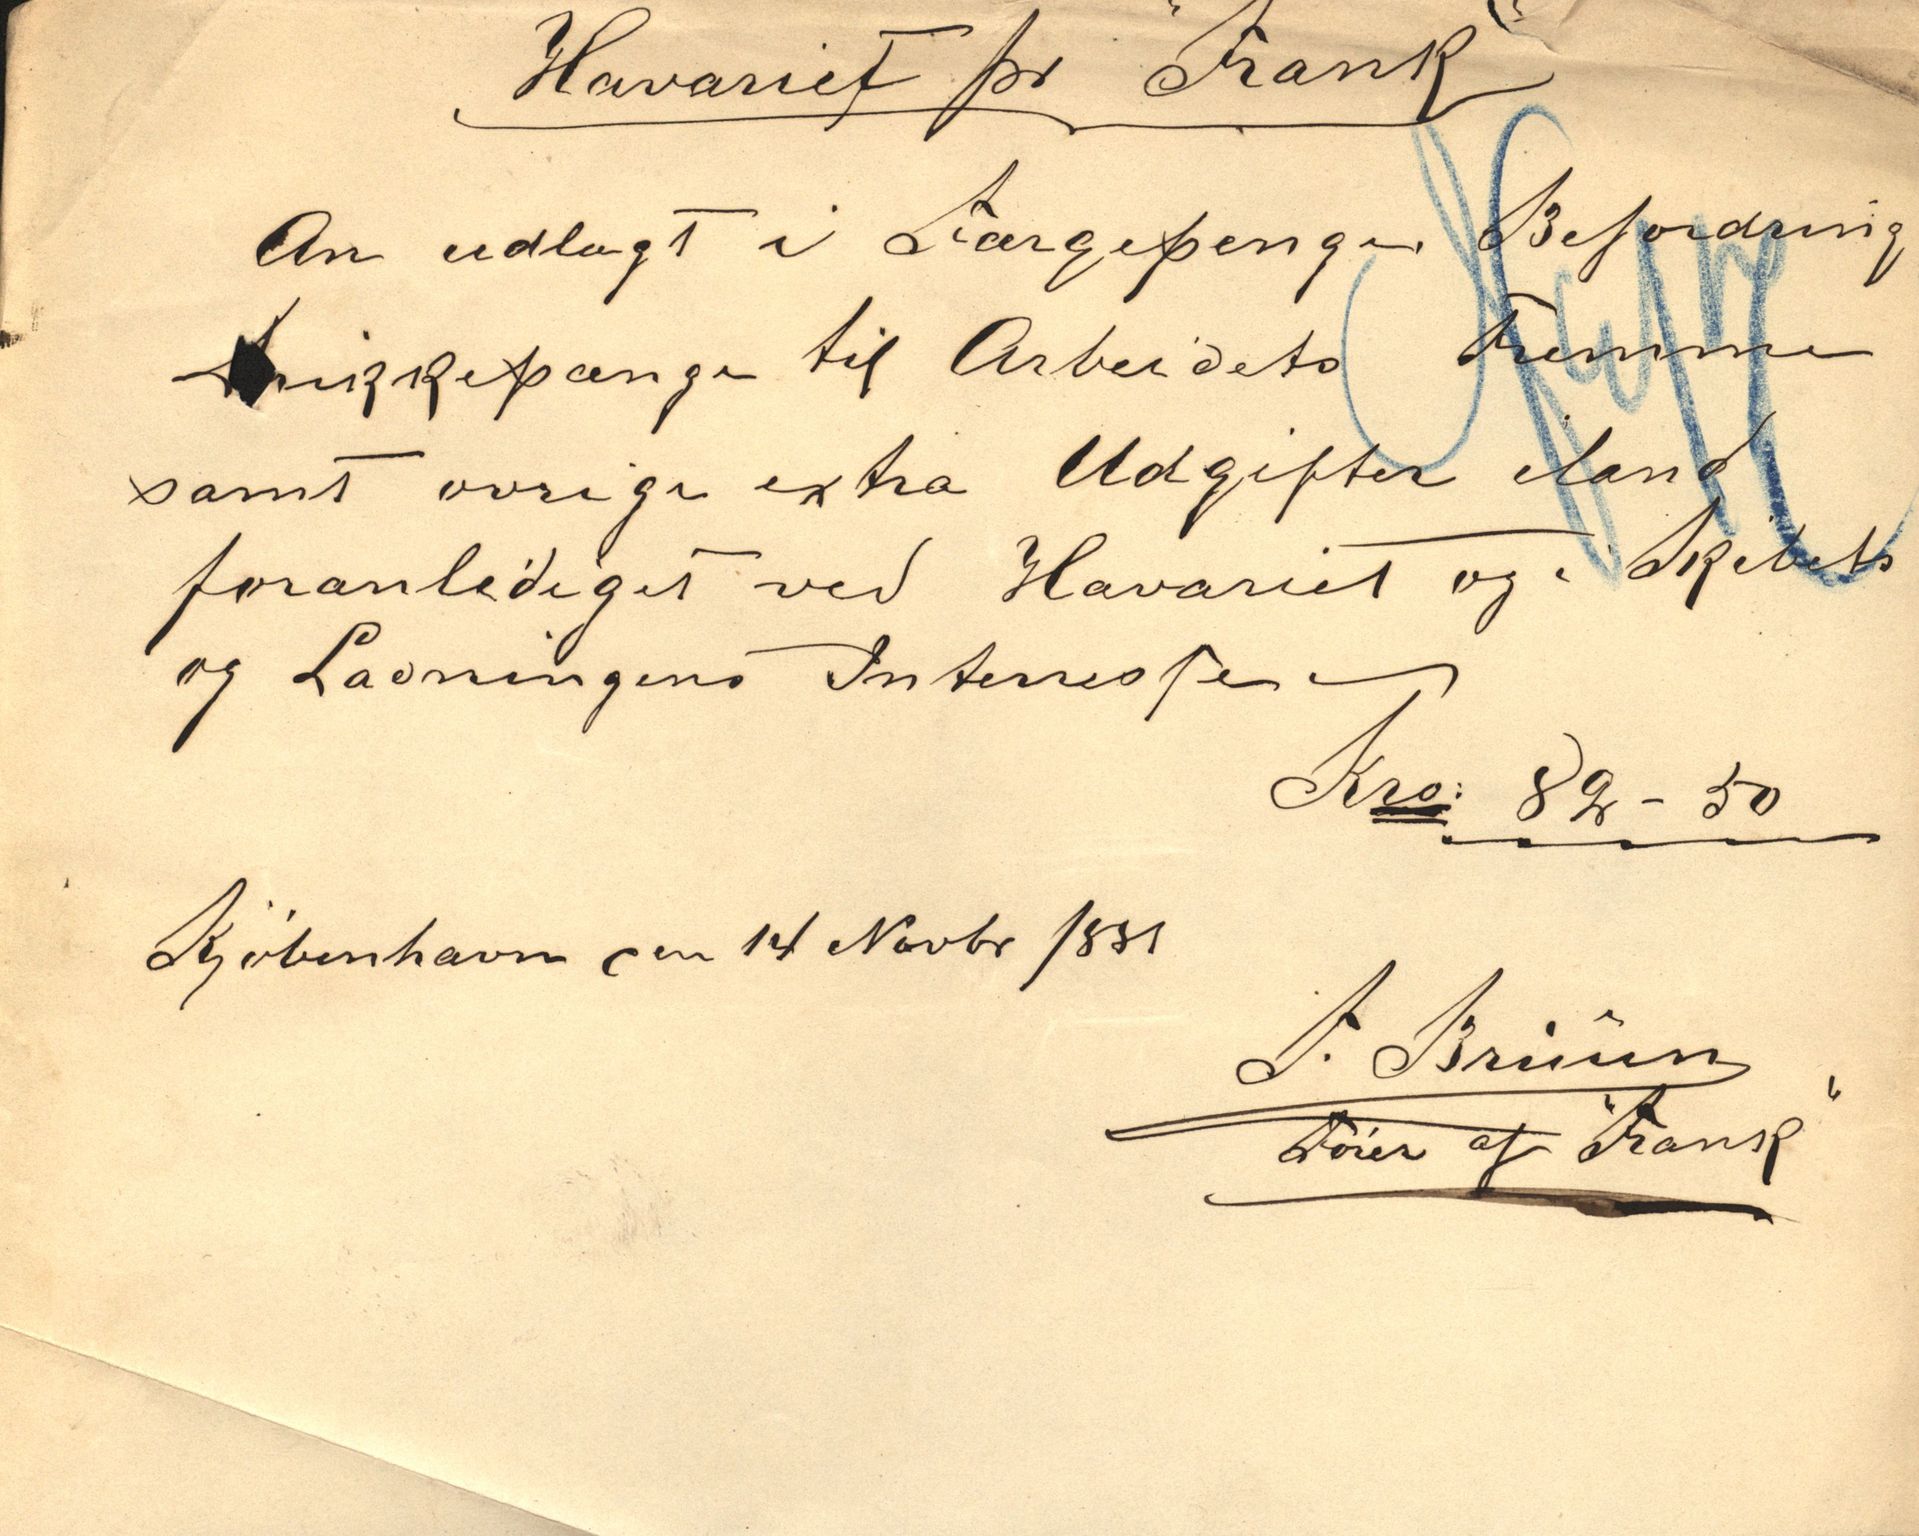 Havariet pr "Frank"
An udlagt i Færgepenge. Befordring
Drikkepænge til Arbeidets Fremme
samt øvrige extra Udgifter iland
foranlediget ved Havariet og i Skibets
og Ladningens Interresse
Kro: 82 - 50
Kjöbenhavn den 14 Novbr 1881
F. Brüün
Förer af "Frank"